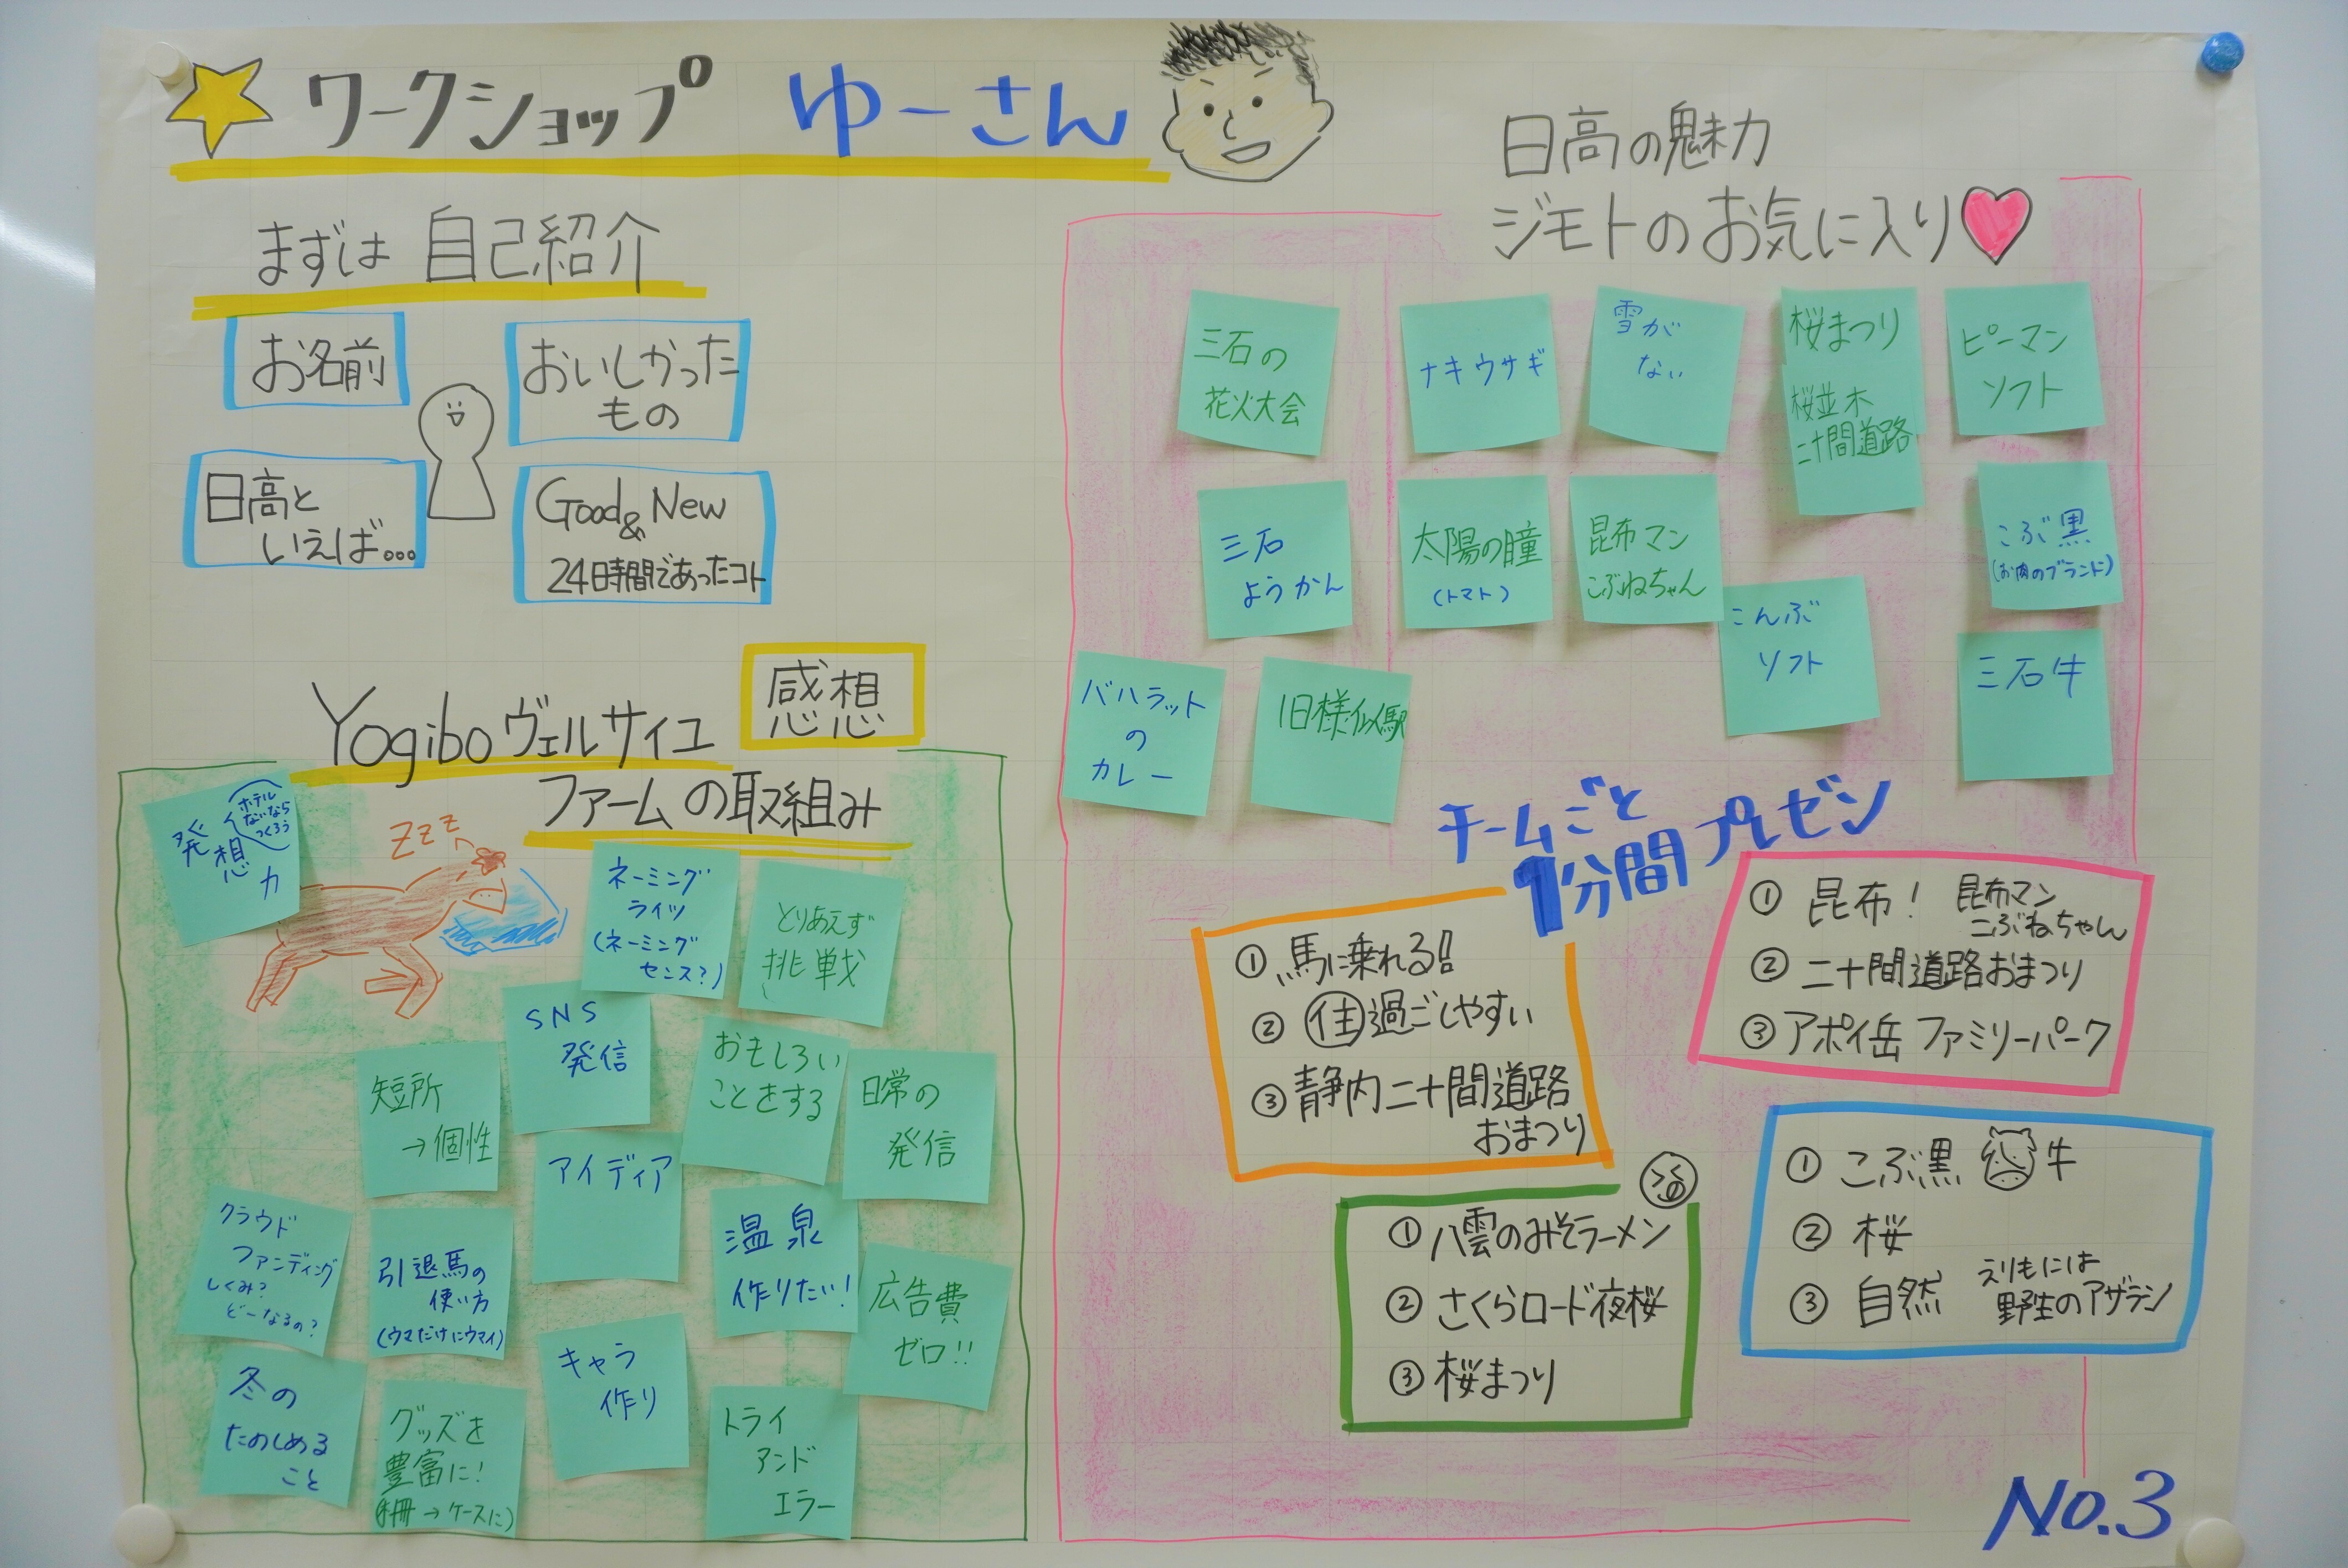 ワークショップ ゆーさん
まずは 自己紹介
お名前
おいしかった
もの
日高と
いえば...
Good & New
24時間であったコト
Yogibo ヴェルサイユ
ファームの取組み
感想
発想力
ホテル
ないなら
つくろう
zzz
ネーミング
ライツ
(ネーミング
センス?)
とりあえず
挑戦
SNS
発信
おもしろい
ことをする
短所
→個性
日常の
発信
アイディア
クラウド
ファンディング
しくみ?
どーなるの?
引退馬の
使い方
(ウマだけにウマイ)
温泉
作りたい!
広告費
ゼロ!!
冬の
たのしめる
こと
グッズを
豊富に!
→ケースに)
キャラ
作り
トライ
アンド
エラー
日高の魅力
ジモトのお気に入り
三石の
花火大会
ナキウサギ
雪が
ない
桜まつり
桜並木
二十間道路
ピーマン
ソフト
三石
ようかん
太陽の瞳
(トマト)
昆布マン
こぶねちゃん
こんぶ
ソフト
こぶ黒
(お肉のブランド)
三石牛
バハラット
の
カレー
旧様似駅
チームごと
1分間プレゼン
① 馬に乗れる!!
② 住 過ごしやすい
③ 静内二十間道路
おまつり
① 昆布! 昆布マン
こぶねちゃん
② 二十間道路おまつり
③ アポイ岳 ファミリーパーク
① 八雲のみそラーメン
② さくらロード夜桜
③ 桜まつり
① こぶ黒 牛
② 桜
③ 自然 えりもには
野生のアザラシ
No.3